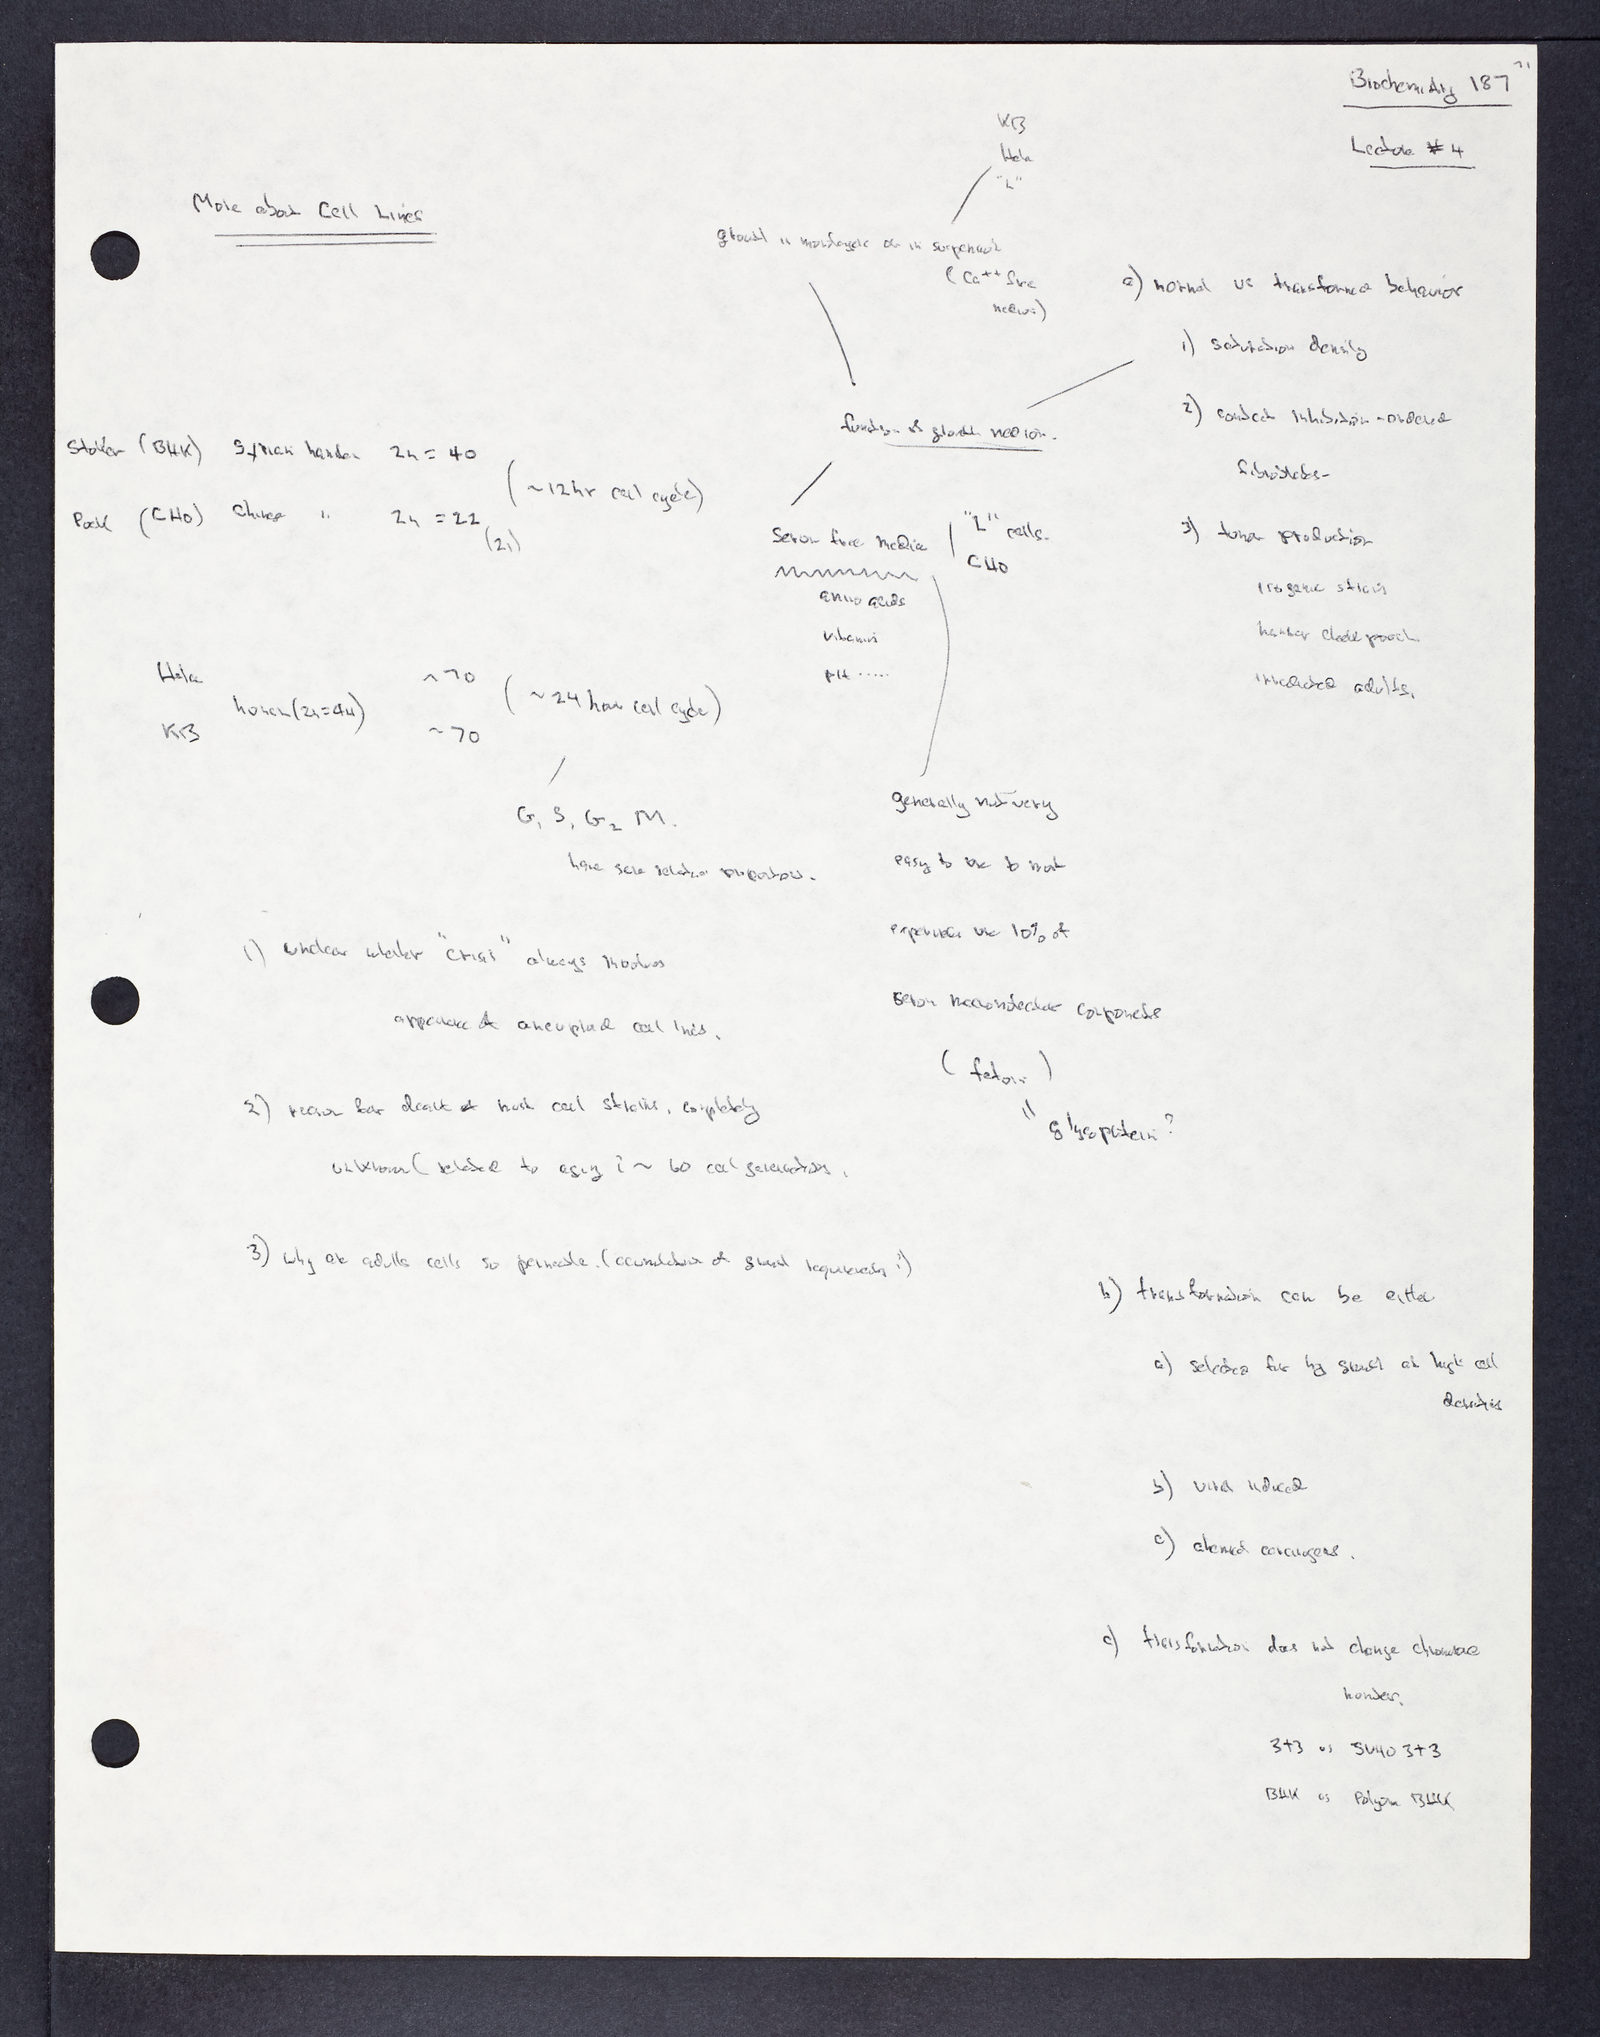 Biochemistry 187
Lecture # 4
More about Cell Lines
KB
Hela
"L"
growth in monolayer or in suspension
(Ca++ free
medium)
function of growth medium.
Stoker (BHK) Syrian hamster 2n = 40
(~12 hr cell cycle)
Puck (CHO) Chinese " 2n = 22
(21)
Hela ~70
human (2n=44) (~24 hour cell cycle)
KB ~70
G, S, G2 M.
have same relative proportions.
Serum free media
"L" cells.
CHO
amino acids
vitamins
pH .....
generally not very
easy to use so most
experiments use 10% of
serum macromolecular components
(fetuin)
" glycoprotein?
a) normal vs transformed behavior
1) saturation density
2) contact inhibition - ordered
fibroblasts-
3) tumor production
isogenic strains
hamster cheek pouch
irradiated adults.
1) unclear whether "crisis" always involves
appearance of aneuploid cell lines.
2) reason for death of most cell strains, completely
unknown (related to aging? ~ 60 cell generations.
3) why are adults cells so permeable. (accumulation of growth requirements?)
b) transformation can be either
a) selected for by growth at high cell
densities
b) viral induced
c) chemical carcinogens.
c) transformation does not change chromosome
number.
3T3 vs SV40 3T3
BHK vs Polyoma BHK